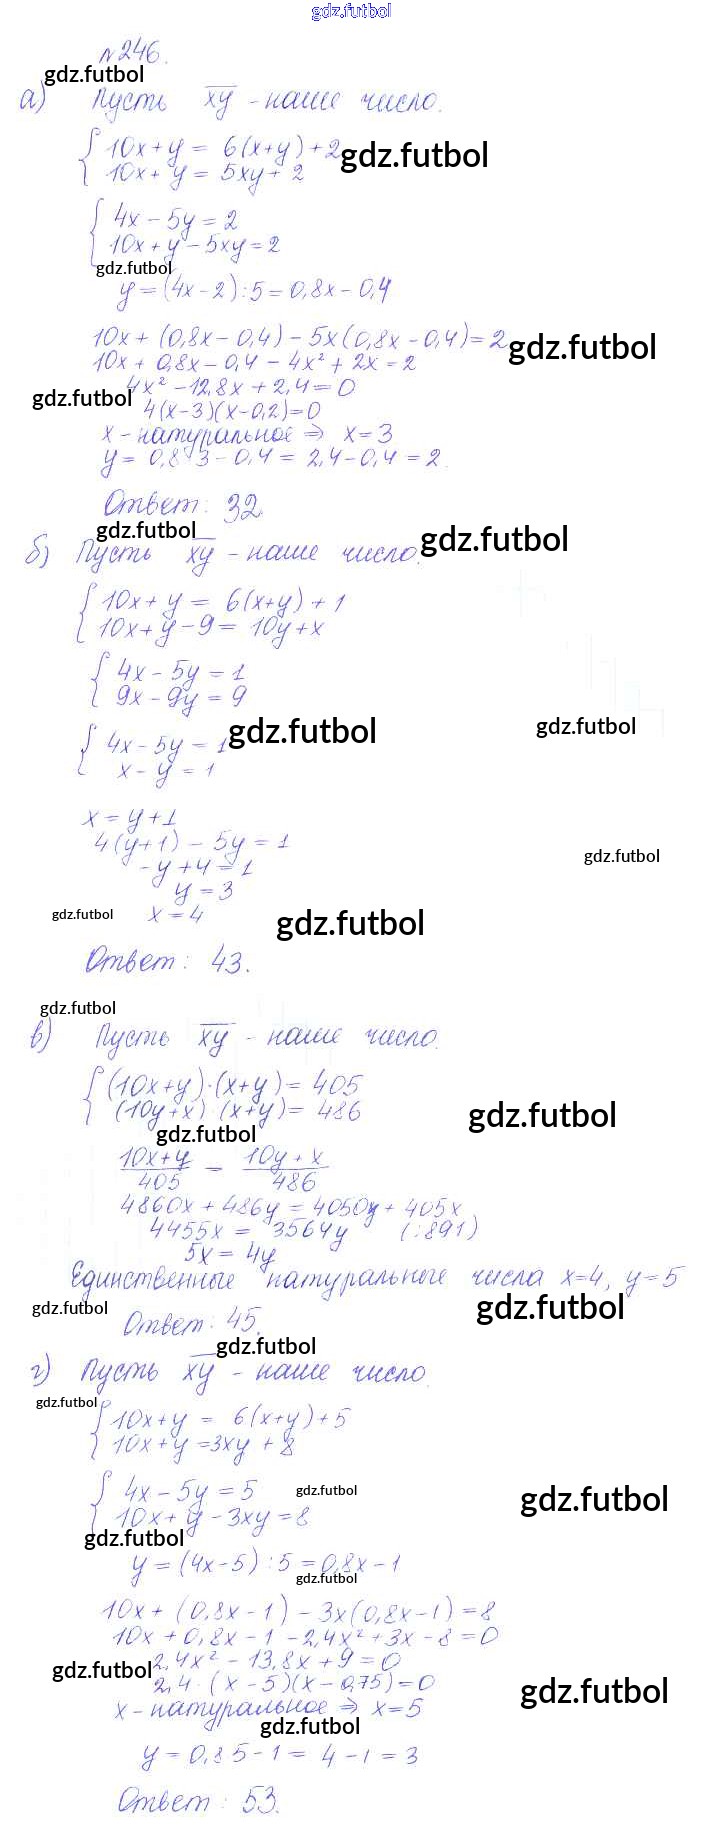 gdz.futbol
№246.
gdz.futbol
а) Пусть xy - наше число.
10x + y = 6(x+y) + 2
gdz.futbol
10x + y = 5xy + 2
4x - 5y = 2
10x + y - 5xy = 2
gdz.futbol
y = (4x - 2) : 5 = 0,8x - 0,4
10x + (0,8x - 0,4) - 5x(0,8x - 0,4) = 2
gdz.futbol
10x + 0,8x - 0,4 - 4x² + 2x = 2
4x² - 12,8x + 2,4 = 0
gdz.futbol
4(x-3)(x-0,2)=0
x - натуральное ⇒ x=3
y = 0,8·3 - 0,4 = 2,4 - 0,4 = 2.
Ответ: 32.
gdz.futbol
gdz.futbol
б) Пусть xy - наше число.
10x + y = 6(x+y) + 1
10x + y - 9 = 10y + x
4x - 5y = 1
9x - 9y = 9
gdz.futbol
gdz.futbol
4x - 5y = 1
x - y = 1
x = y + 1
4(y+1) - 5y = 1
gdz.futbol
-y + 4 = 1
y = 3
gdz.futbol
x = 4
gdz.futbol
Ответ: 43.
gdz.futbol
в) Пусть xy - наше число.
(10x+y)·(x+y) = 405
(10y+x)·(x+y) = 486
gdz.futbol
gdz.futbol
10x+y / 405 = 10y+x / 486
4860x + 486y = 4050y + 405x
4455x = 3564y (:891)
5x = 4y
Единственные натуральные числа x=4, y=5
gdz.futbol
gdz.futbol
Ответ: 45.
gdz.futbol
г) Пусть xy - наше число.
gdz.futbol
10x + y = 6(x+y) + 5
10x + y = 3xy + 8
4x - 5y = 5
gdz.futbol
gdz.futbol
10x + y - 3xy = 8
gdz.futbol
y = (4x-5) : 5 = 0,8x - 1
gdz.futbol
10x + (0,8x - 1) - 3x(0,8x - 1) = 8
10x + 0,8x - 1 - 2,4x² + 3x - 8 = 0
2,4x² - 13,8x + 9 = 0
gdz.futbol
2,4·(x - 5)(x - 0,75) = 0
gdz.futbol
x - натуральное ⇒ x=5
gdz.futbol
y = 0,8·5 - 1 = 4 - 1 = 3
Ответ: 53.